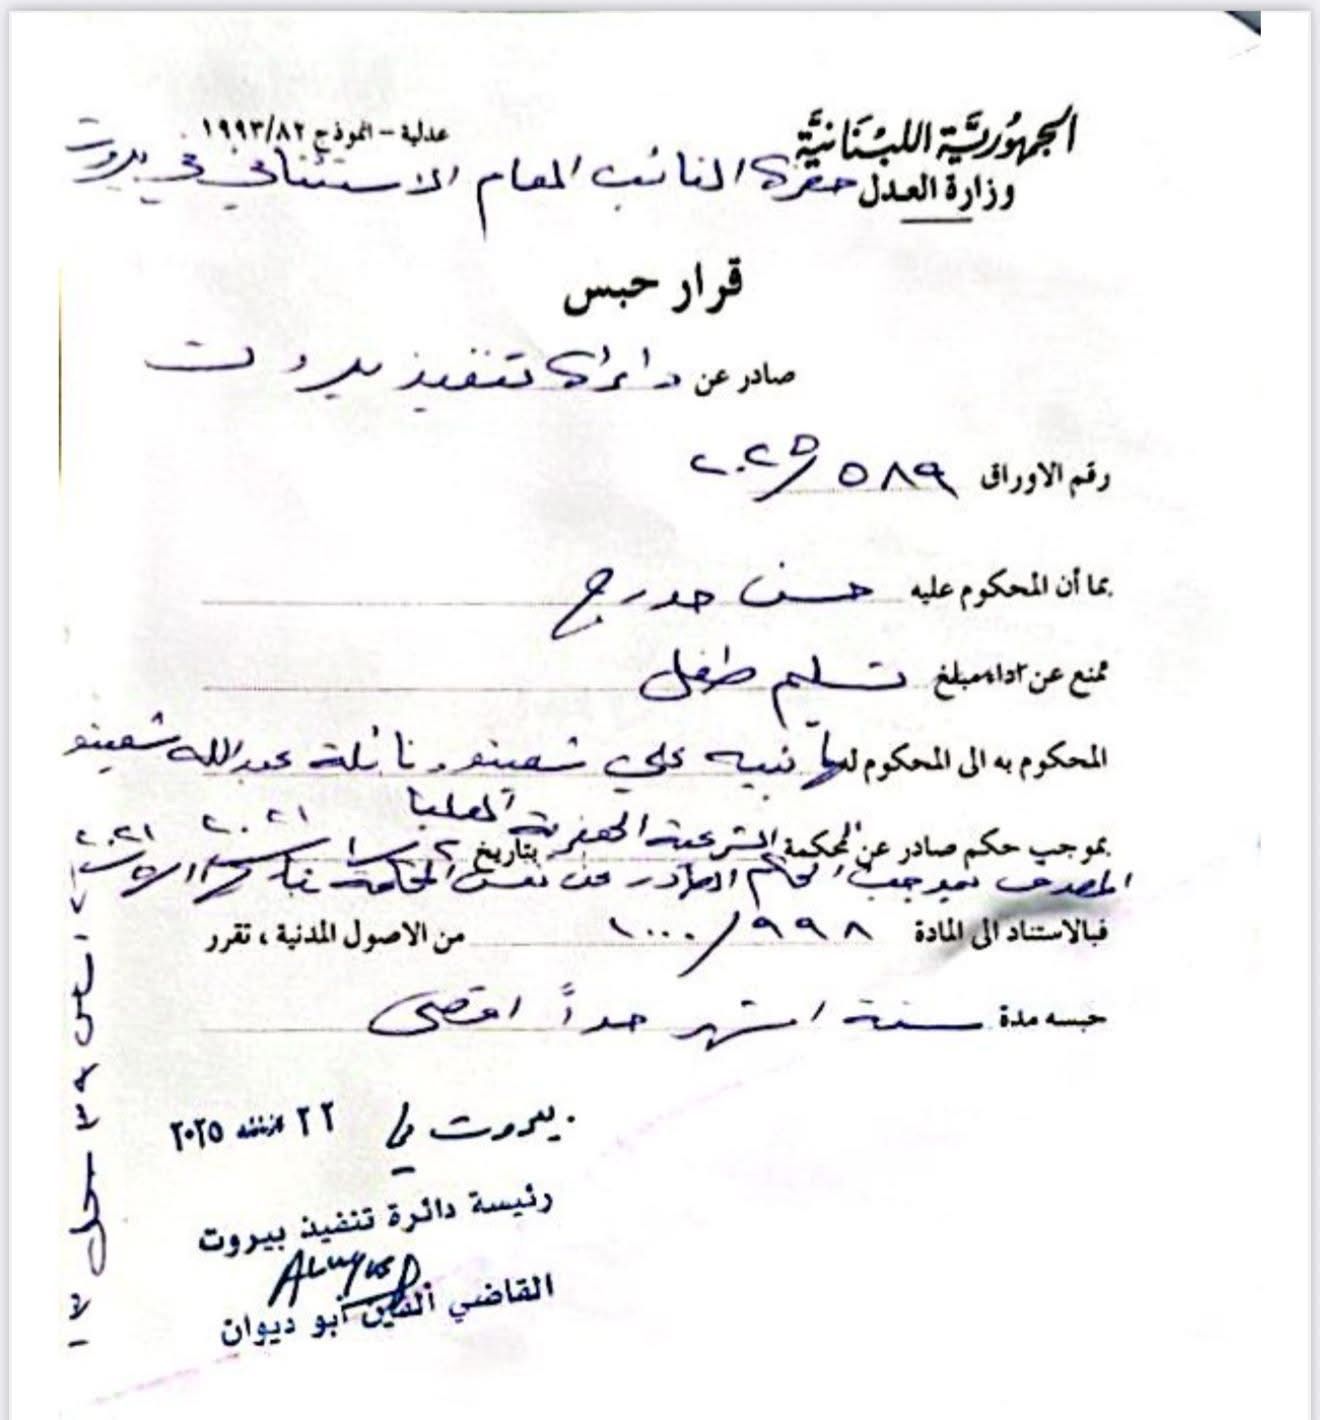 الجمهورية اللبنانية
وزارة العدل
عدلية - نموذج ١٩٩٣/٨٢
حضرة النائب العام الاستئنافي في بيروت
قرار حبس
صادر عن دائرة تنفيذ بيروت
رقم الاوراق ٥٨٩/٢٠٢٥
بما أن المحكوم عليه حسن حدرج
ممتنع عن اداء مبلغ تسليم طفل
المحكوم به الى المحكوم لها نبيه علي شعيتو. نائلة عبدالله شعيتو
بموجب حكم صادر عن المحكمة الشرعية الجعفرية العليا بتاريخ
المصدق بموجب الحكم الصادر عن نفس المحكمة
فبالاستناد الى المادة ٩٩٨/١٠٠٠ من الاصول المدنية ، تقرر
حبسه مدة ستة اشهر حداً اقصى
بيروت في ٢٢ ٢٠٢٥
رئيسة دائرة تنفيذ بيروت
القاضي ألفين أبو ديوان